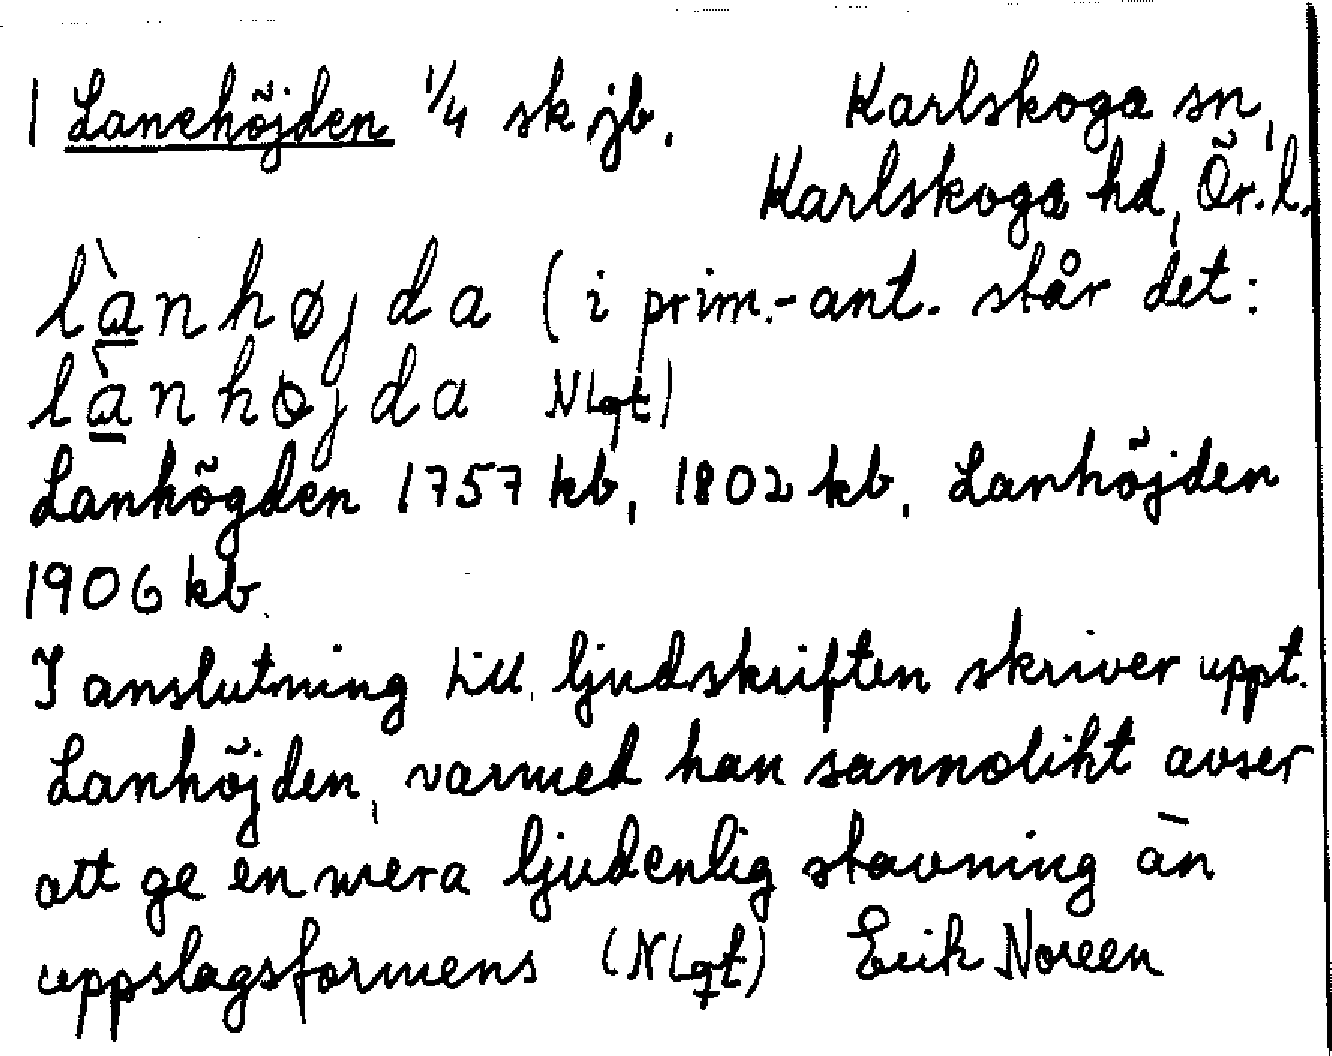 1 Lanehöjden 1/4 sk jb. Karlskoga sn,
Karlskoga hd, Ör. l.
lànhøjda (i prim.-ant. står det:
lànhøjda NLqt)
Lanhögden 1757 kb, 1802 kb. Lanhöjden
1906 kb.
I anslutning till ljudskriften skriver uppt.
Lanhöjden, varmed han sannolikt avser
att ge en mera ljudenlig stavning än
uppslagsformens (NLqt) Erik Noreen